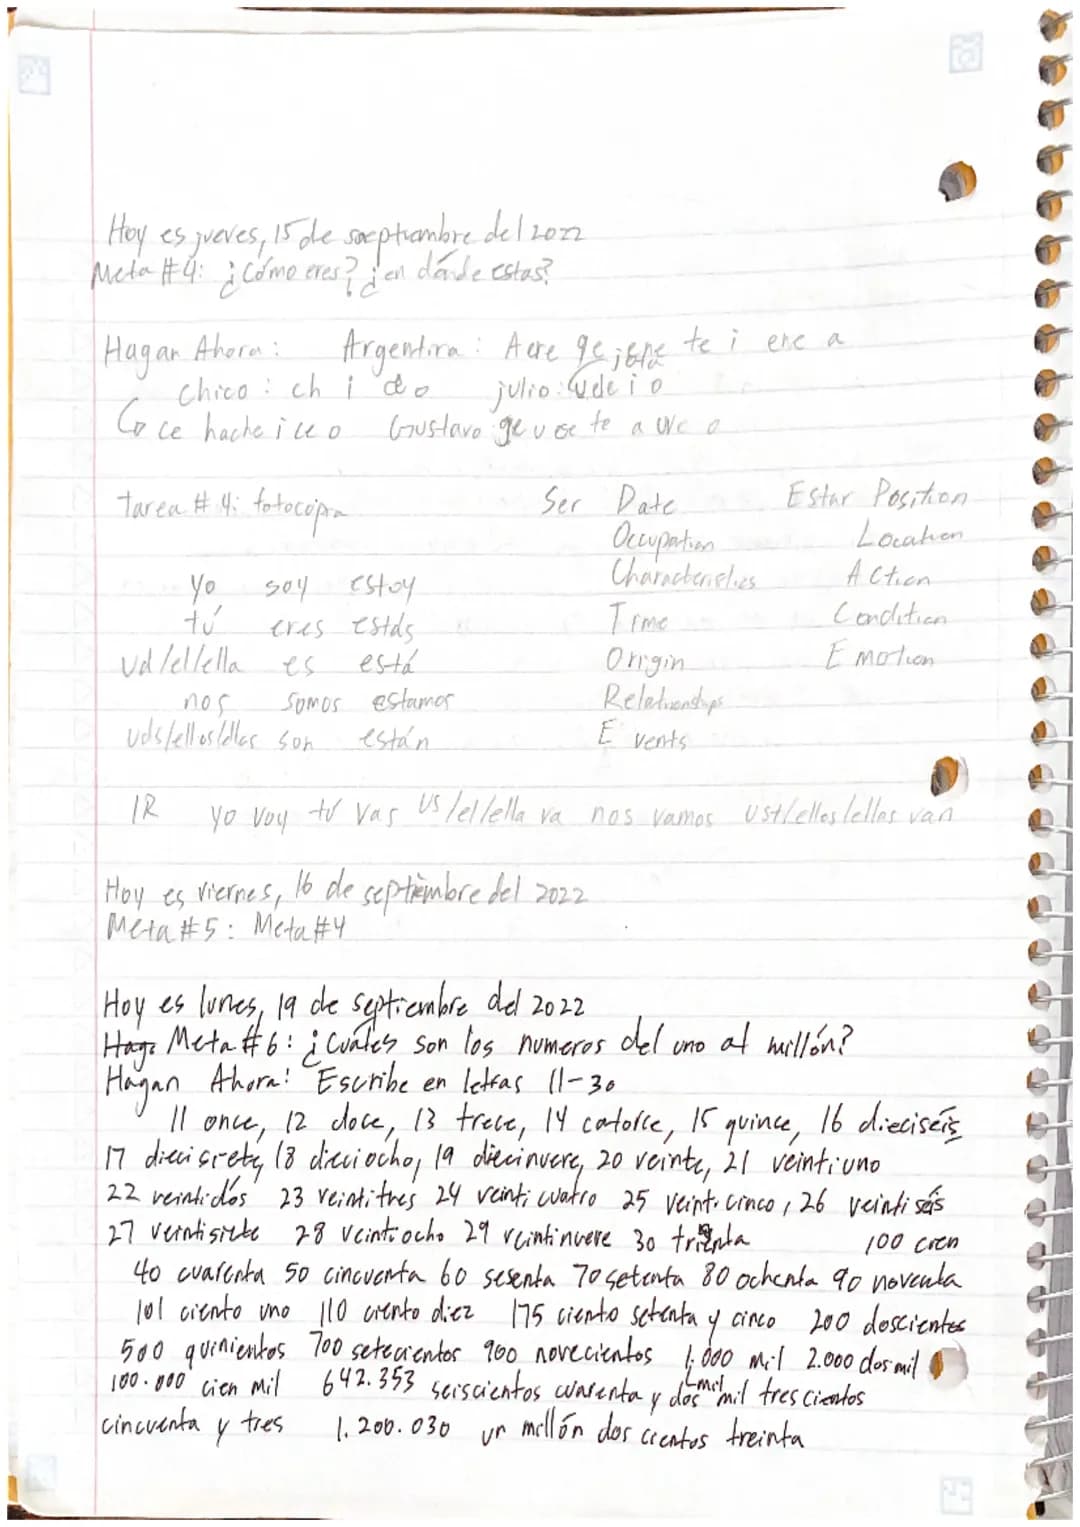 Hoy es jueves, 15 de saeptiembre del 2022
Meta #4: ¿Cómo eres? ¿en dónde estas?
Hagan Ahora: Argentina: Acre ge jene te i ene a
Chico: ch i do julio: u de i o
Co ce hache i ce o Gustavo ge u ese te a uve o
tarea #4: fotocopia
Ser Date Estar Position
Occupation Location
Characteristics Action
Time Condition
Origin Emotion
Relationships
Events
yo soy estoy
tú eres estás
ud/el/ella es está
nos somos estamos
uds/ellos/ellas son están
IR yo voy tú vas us/el/ella va nos vamos ust/ellos/ellas van
Hoy es viernes, 16 de septiembre del 2022
Meta #5: Meta #4
Hoy es lunes, 19 de septiembre del 2022
Meta #6: ¿Cuáles son los numeros del uno al millón?
Hagan Ahora: Escribe en letras 11-30
11 once, 12 doce, 13 trece, 14 catorce, 15 quince, 16 dieciseís
17 diecisiete, 18 dieciocho, 19 diecinueve, 20 veinte, 21 veintiuno
22 veintidós 23 veintitres 24 veinticuatro 25 veinticinco, 26 veintiséis
27 veintisiete 28 veintiocho 29 veintinueve 30 trienta 100 cien
40 cuarenta 50 cincuenta 60 sesenta 70 setenta 80 ochenta 90 noventa
101 ciento uno 110 ciento diez 175 ciento setenta y cinco 200 doscientos
500 quinientos 700 setecientos 900 novecientos 1.000 mil 2.000 dos mil
100.000 cien mil 642.353 seiscientos cuarenta y dos mil mil tres cientos
cincuenta y tres 1.200.030 un millón dos cientos treinta